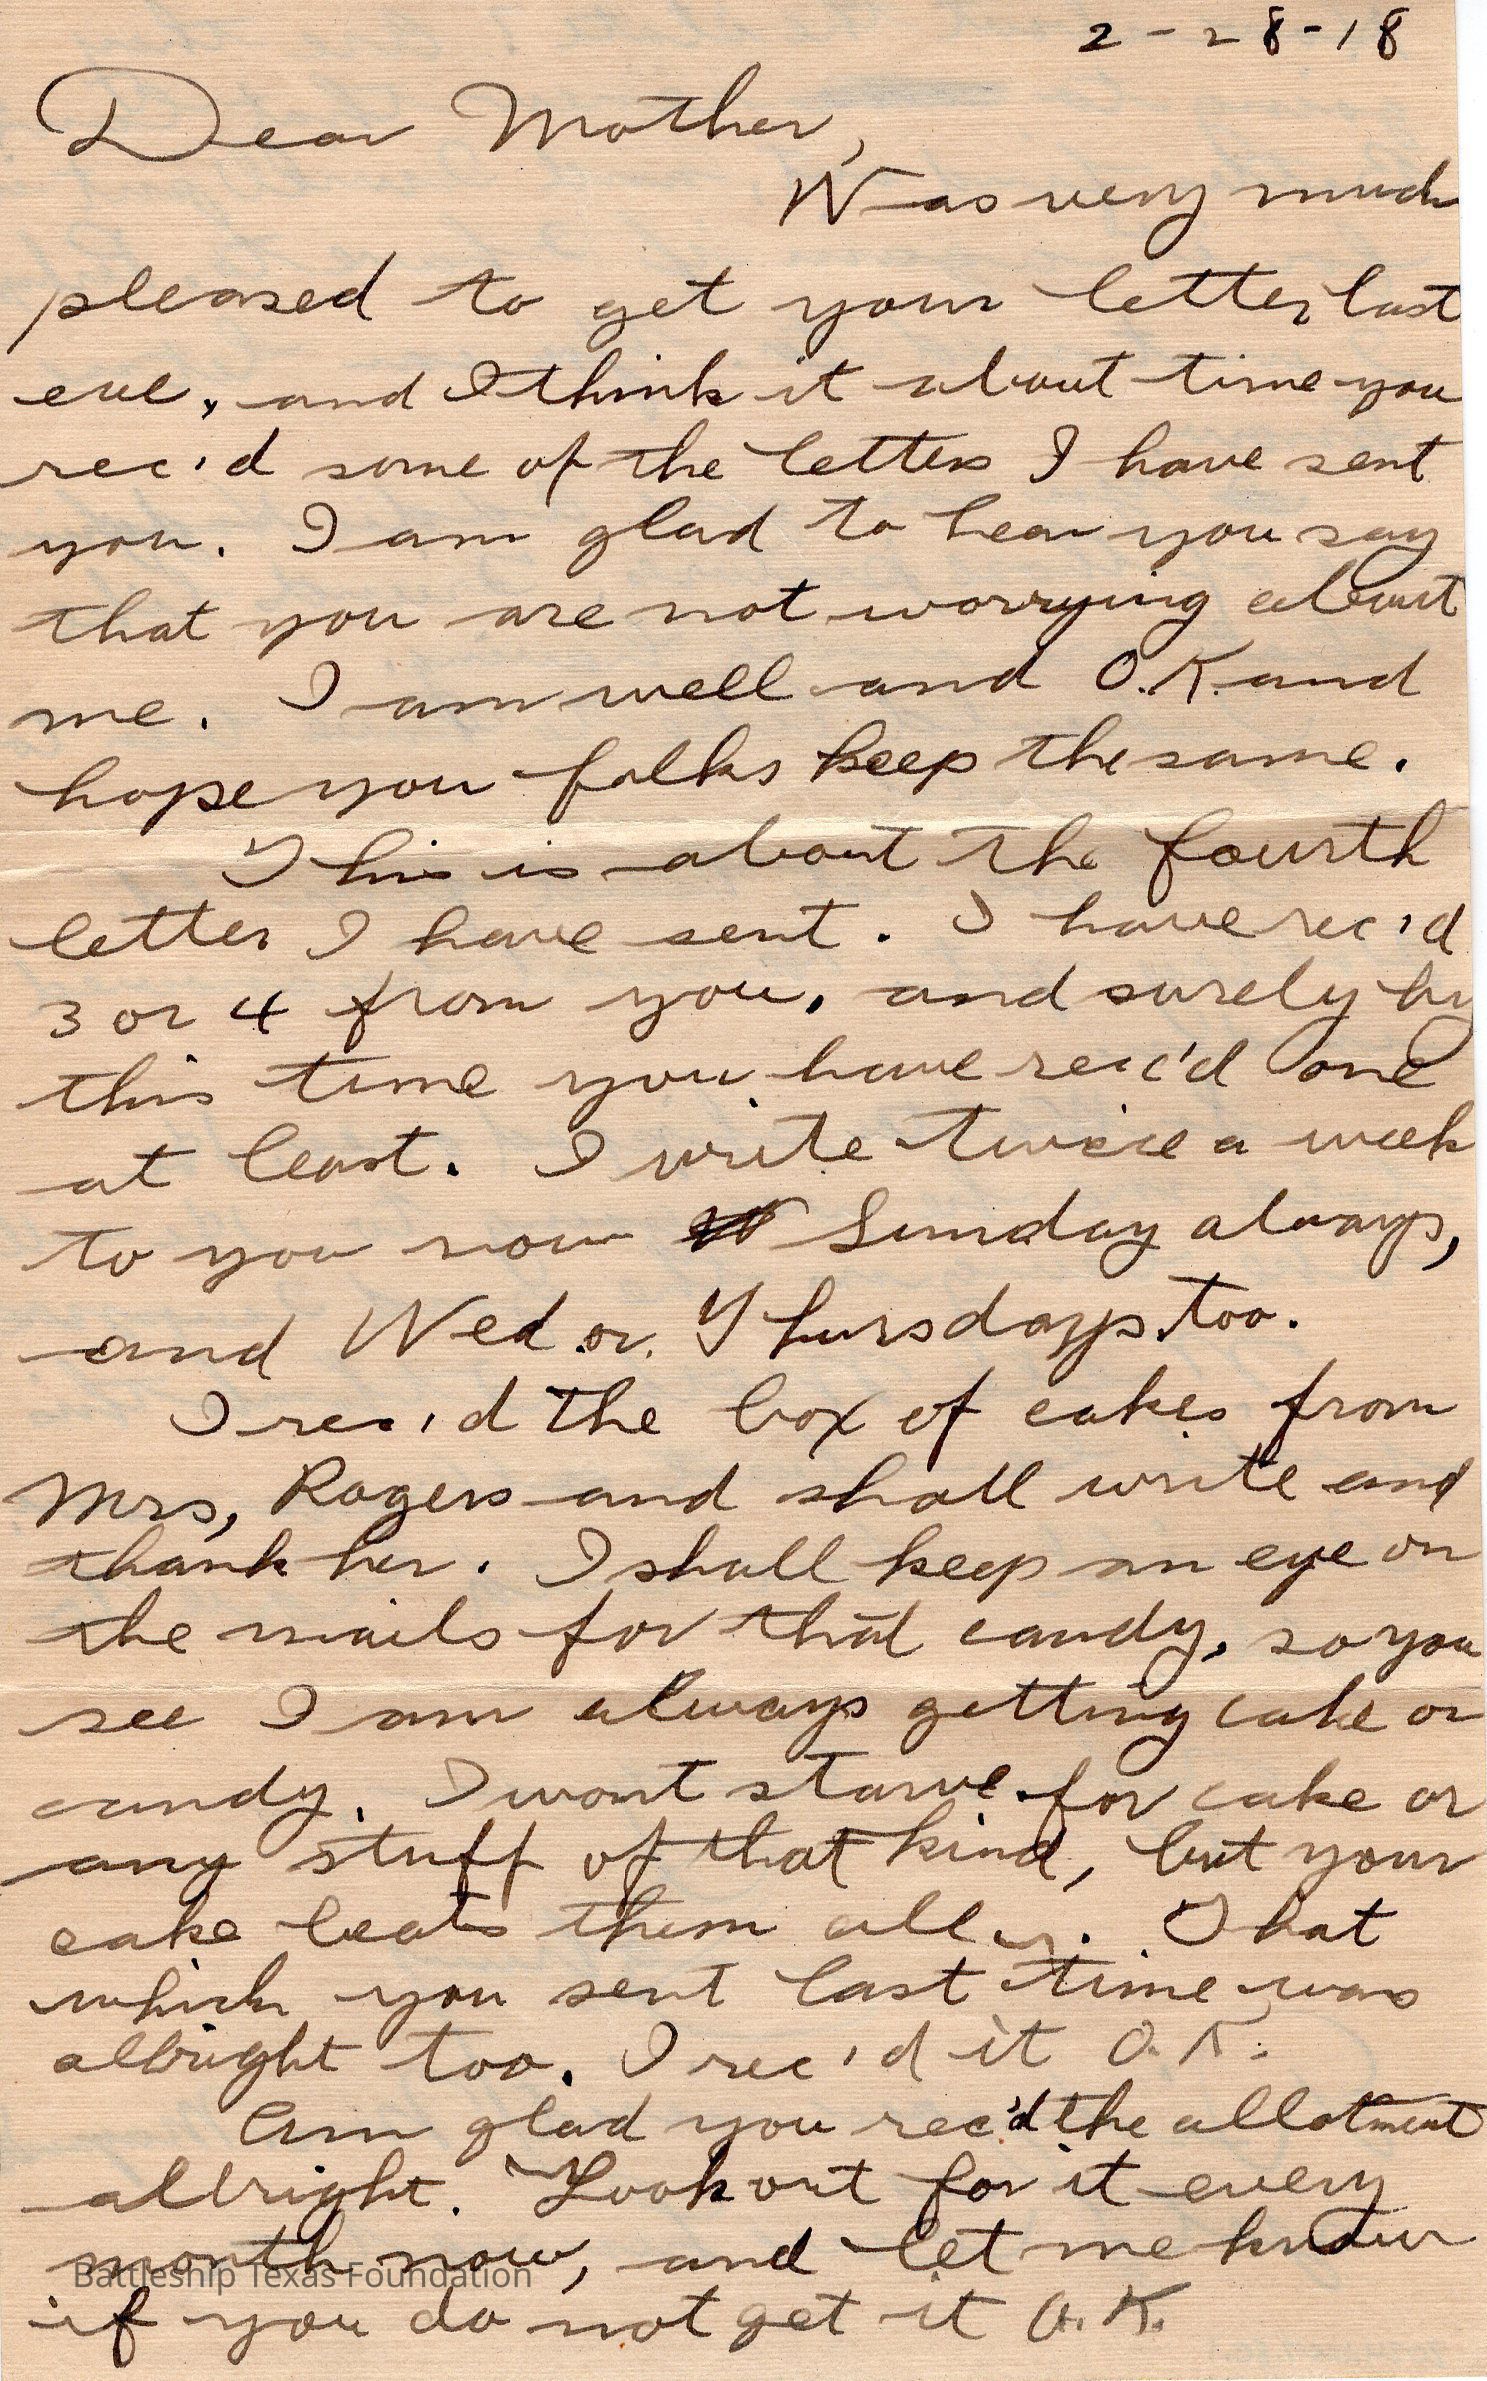 2-28-18
Dear Mother,
Was very much
pleased to get your letter last
eve, and I think it about time you
rec'd some of the letters I have sent
you. I am glad to hear you say
that you are not worrying about
me. I am well and O.K. and
hope you folks keep the same.
This is about the fourth
letter I have sent. I have rec'd
3 or 4 from you, and surely by
this time you have rec'd one
at least. I write twice a week
to you now Sunday always,
and Wed. or. Thursdays too.
I rec'd the box of cakes from
Mrs, Rogers and shall write and
thank her. I shall keep an eye on
the mails for that candy, so you
see I am always getting cake or
candy. I wont starve for cake or
any stuff of that kind, but your
cake beats them all. That
which you sent last time was
allright too. I rec'd it O.K.
Am glad you rec'd the allotment
allright. Look out for it every
month now, and let me know
Battleship Texas Foundation
if you do not get it O.K.